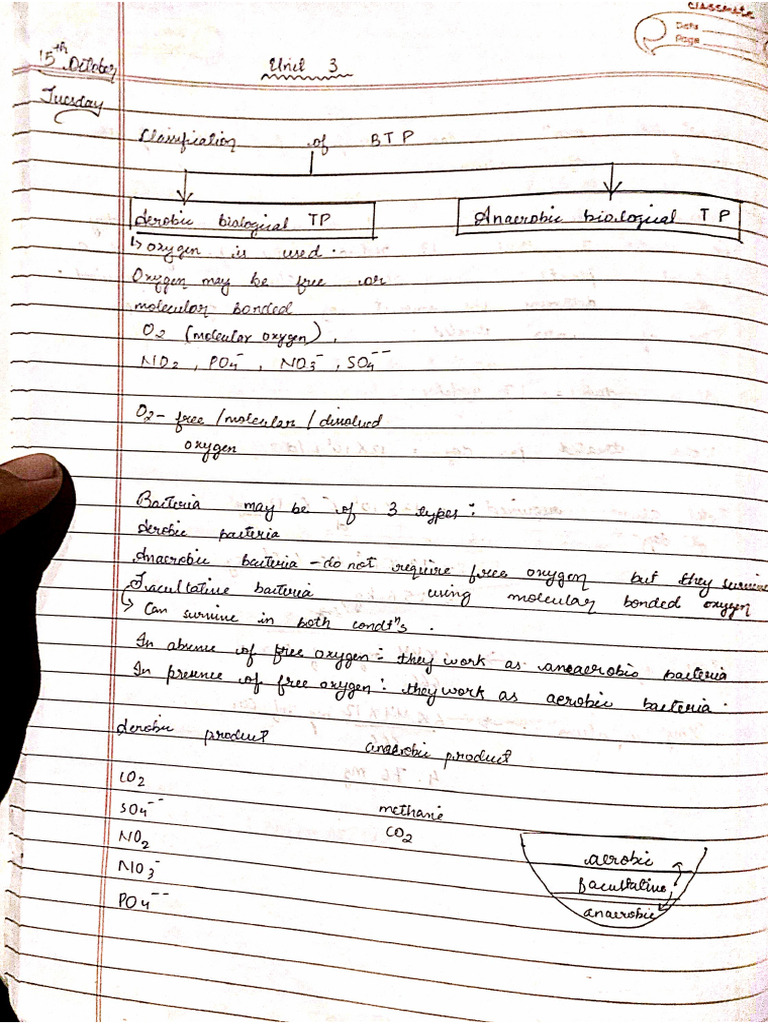 classmate
Date
Page
15th October
Tuesday
Unit 3
Classification of BTP
Aerobic biological TP
Anaerobic biological TP
↳ oxygen is used.
Oxygen may be free or
molecular bonded
O2 (molecular oxygen),
NO2, PO4⁻, NO3⁻, SO4⁻⁻
O2 - free / molecular / dissolved
oxygen
Bacteria may be of 3 types:
Aerobic bacteria
Anaerobic bacteria - do not require free oxygen but they survive
using molecular bonded oxygen
Facultative bacteria
↳ Can survive in both condtⁿs.
In absence of free oxygen: they work as anaerobic bacteria
In presence of free oxygen: they work as aerobic bacteria.
Aerobic product
anaerobic product
CO2
SO4⁻⁻
methane
NO2
CO2
NO3⁻
PO4⁻⁻
aerobic
facultative
anaerobic